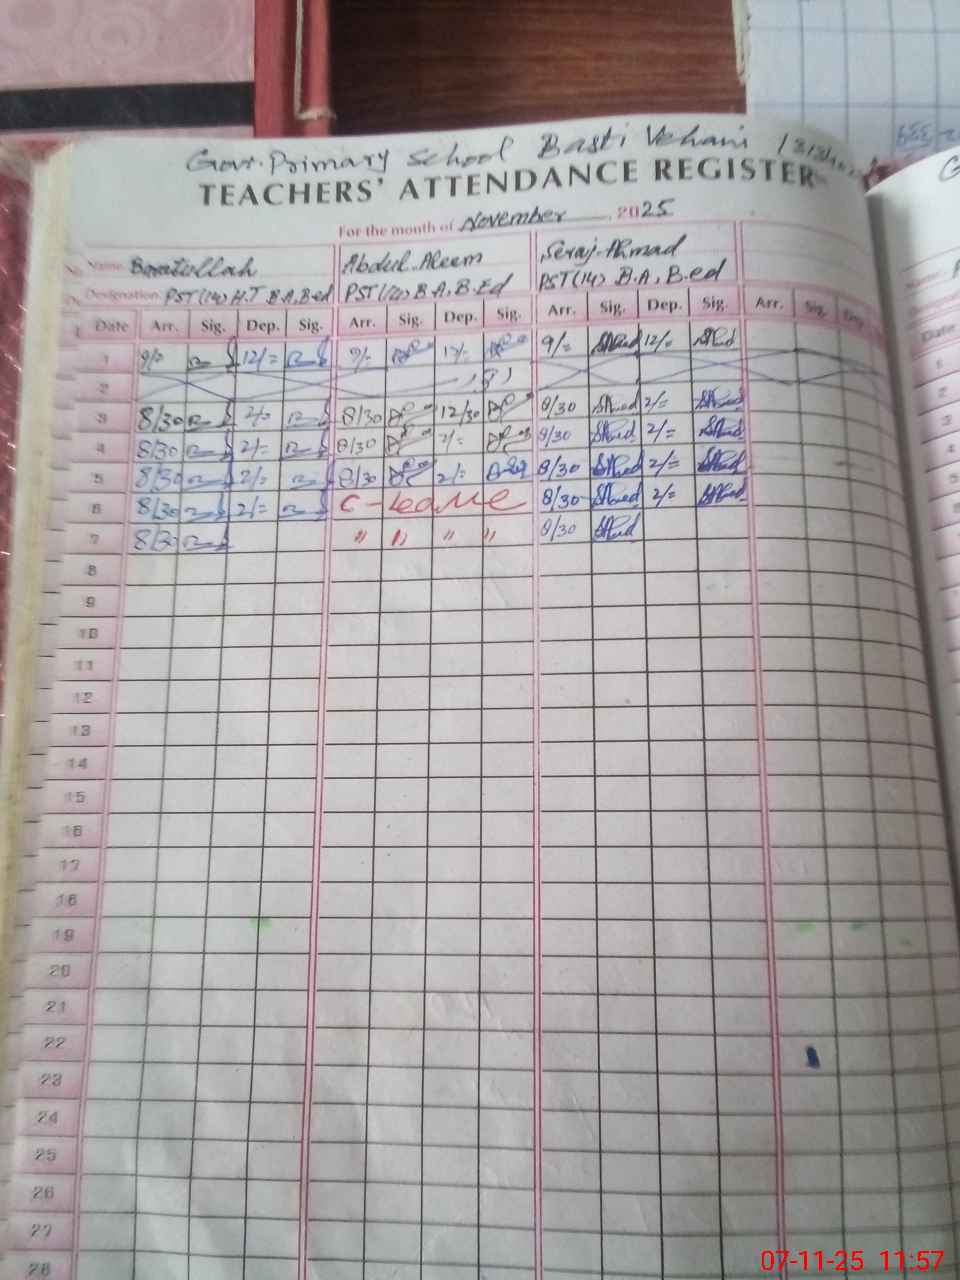 Govt. Primary School Basti
TEACHERS' ATTENDANCE REGISTER
For the month of November 2025
Name Abdul Aleem Seraj Ahmad
Designation PST(14) H.T B.A, B.ed PST B.A, B.Ed PST(14) B.A, B.ed
Date Arr. Sig. Dep. Sig. Arr. Sig. Dep. Sig. Arr. Sig. Dep. Sig. Arr. Sig.
1 9/= 12/= 9/= 12/= 9/= 12/=
2
3 8/30 2/= 8/30 12/30 8/30 2/=
4 8/30 2/= 8/30 2/= 8/30 2/=
5 8/30 2/= 8/30 2/= 8/30 2/=
6 8/30 2/= C-Leave 8/30 2/=
7 8/30 " " " " 8/30
8
9
10
11
12
13
14
15
16
17
18
19
20
21
22
23
24
25
26
27
28
07-11-25 11:57